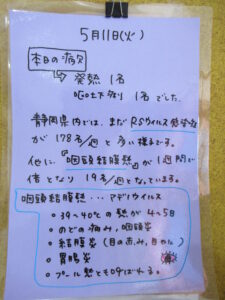 5月11日(火)
本日の病欠
↳ 発熱 1名
嘔吐下痢 1名 でした。
静岡県内では、まだRSウイルス感染症
が 178名/週と 多い様子です。
他に『咽頭結膜熱』が 1週間で
倍となり 19名/週となっています。
咽頭結膜熱・・・アデノウイルス
・39〜40℃の熱が4〜5日
・のどの痛み, 咽頭炎
・結膜炎 (目の赤み, 目やに)
・胃腸炎
・プール熱とも呼ばれる。